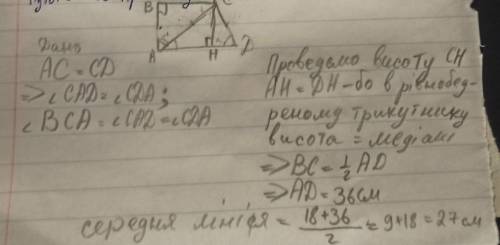 B
A
H
D
Дано
AC = CD
=> ∠CAD = ∠CDA;
∠BCA = ∠CAD = ∠CDA
Проведемо висоту CH
AH = DH - бо в рівнобед-
реному трикутнику
висота = медіані
=> BC = 1/2 AD
=> AD = 36 см
середня лінія = (18+36)/2 = 9+18 = 27 см